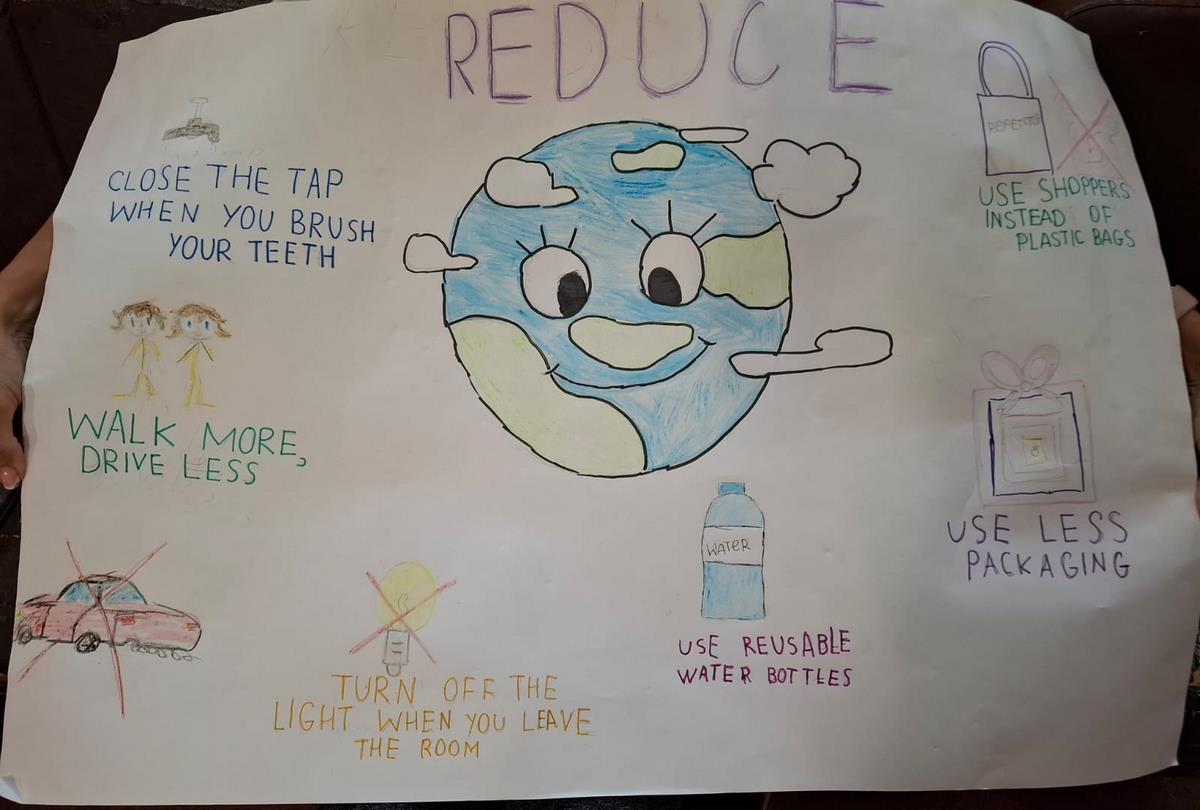 REDUCE
CLOSE THE TAP
WHEN YOU BRUSH
YOUR TEETH
WALK MORE,
DRIVE LESS
TURN OFF THE
LIGHT WHEN YOU LEAVE
THE ROOM
WATER
USE REUSABLE
WATER BOTTLES
USE SHOPPERS
INSTEAD OF
PLASTIC BAGS
USE LESS
PACKAGING